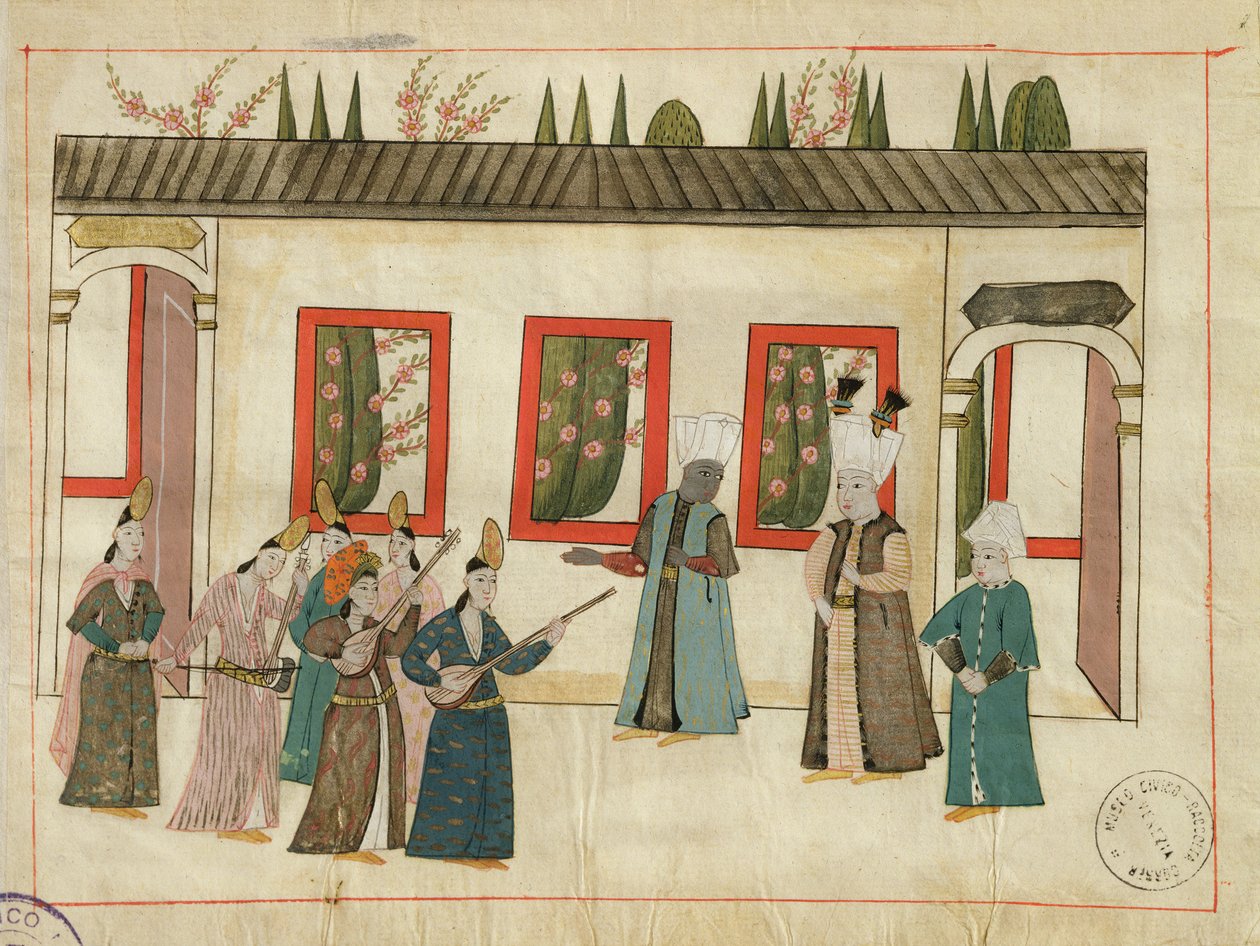 MUSEO CIVICO - RACCOLTA CORRER
VENEZIA
ICO